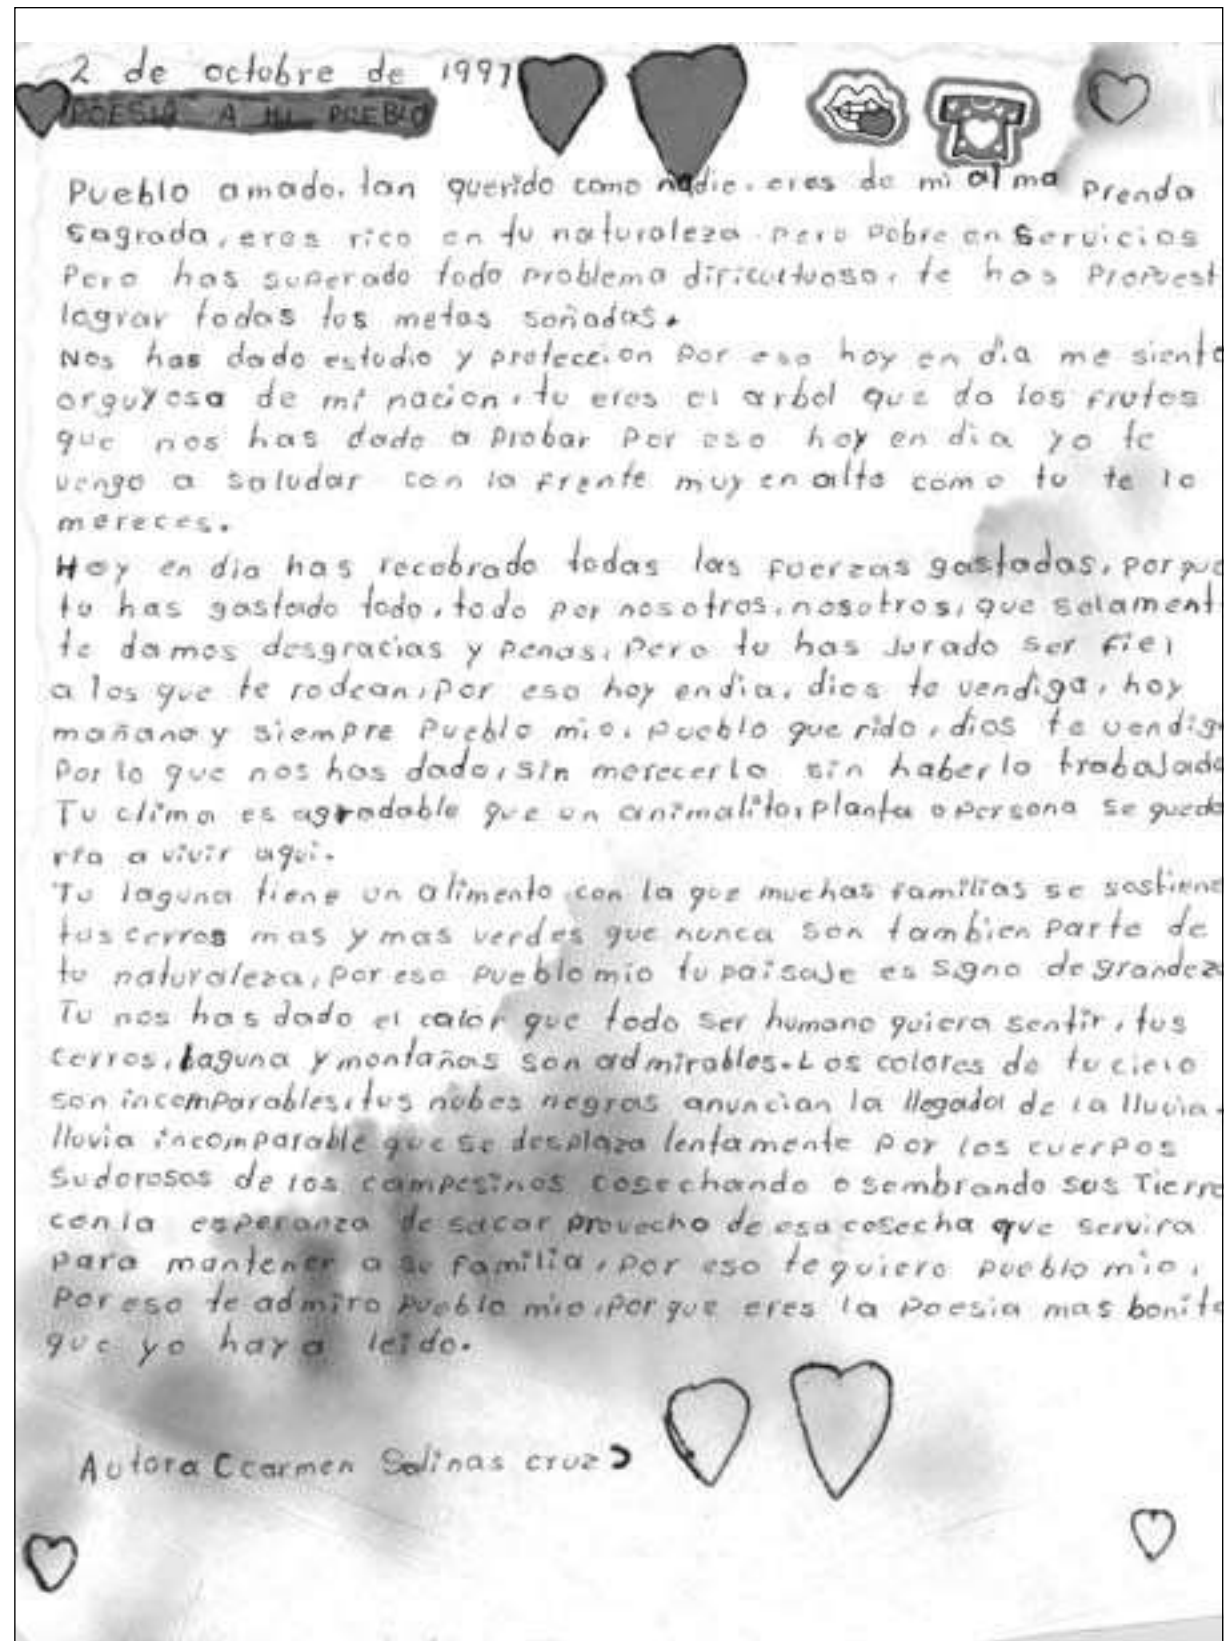 2 de octobre de 1997
POESIA A MI PUEBLO
Pueblo amado. tan querido como nadie. eres de mi alma Prenda
sagrada, eres rico en tu naturaleza pero pobre en servicios
Pero has superado todo problema diricultuoso, te has Propuest
lograr todas tus metas soñadas.
Nos has dado estudio y proteccion por eso hoy en dia me siento
orguyosa de mi nacion, tu eres el arbol que da los frutos
que nos has dado a probar por eso hoy en dia yo te
vengo a saludar con la frente muy en alto como tu te lo
mereces.
Hoy en dia has recobrado todas las fuerzas gastadas, porque
tu has gastado todo, todo por nosotros, nosotros, que solament
te damos desgracias y penas, Pero tu has jurado ser fiel
a los que te rodean, por eso hoy en dia, dios te vendiga, hoy
mañana y siempre Pueblo mio, pueblo querido, dios te vendig
Por lo que nos has dado, sin merecerlo sin haberlo trabajado
Tu clima es agradable que un animalito, planta o persona se queda
ria a vivir aqui.
Tu laguna tiene un alimento con la que muchas familias se sostiene
tus cerros mas y mas verdes que nunca son tambien parte de
tu naturaleza, por eso pueblo mio tu paisaje es signo de grandeza
Tu nos has dado el calor que todo ser humano quiera sentir, tus
cerros, Laguna y montañas son admirables. Los colores de tu cielo
son incomparables, tus nubes negras anuncian la llegada de la lluvia.
lluvia incomparable que se desplaza lentamente por los cuerpos
sudorosos de los campesinos cosechando o sembrando sus Tierra
con la esperanza de sacar provecho de esa cosecha que servira
para mantener a su familia, por eso te quiero pueblo mio,
Por eso te admiro pueblo mio, porque eres la Poesia mas bonita
que yo haya leido.
Autora Ccarmen Salinas cruz)